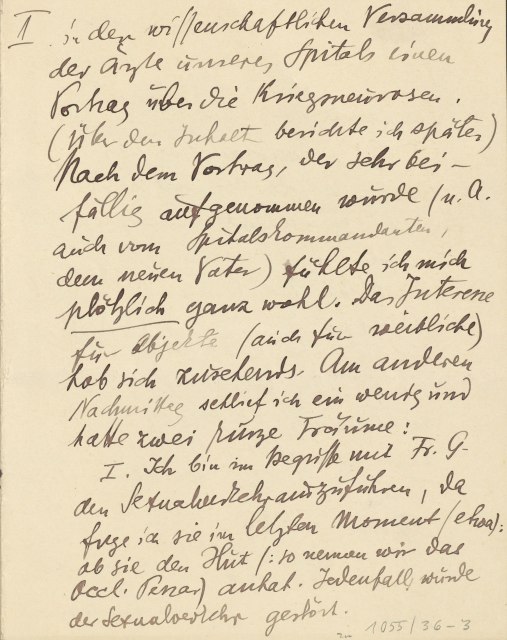 I. in der wissenschaftlichen Versammlung
der Ärzte unseres Spitals einen
Vortrag über die Kriegsneurosen.
(Über den Inhalt berichte ich später)
Nach dem Vortrag, der sehr bei-
fällig aufgenommen wurde (u. A.
auch vom Spitalskommandanten,
dem neuen Vater) fühlte ich mich
plötzlich ganz wohl. Das Interesse
für Objekte (auch für weibliche)
hob sich zusehends. Am anderen
Nachmittag schlief ich ein wenig und
hatte zwei kurze Träume:
I. Ich bin im Begriffe mit Fr. G.
den Sexualverkehr auszuführen, da
frage ich sie im letzten Moment (etwa):
ob sie den Hut (: so nennen wir das
Occl. Pessar) anhat. Jedenfalls wurde
der Sexualverkehr gestört.
1055/36-3